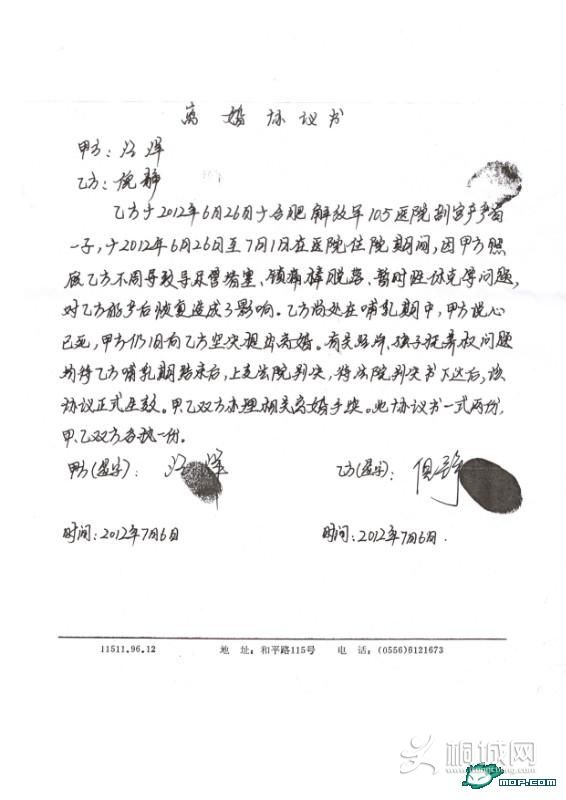 离婚协议书
甲方：汪洋
乙方：倪静
乙方于2012年6月26日于合肥解放军105医院剖宫产产育
一子，于2012年6月26日至7月1日在医院住院期间，因甲方照
顾乙方不周导致导尿管堵塞、镇痛棒脱落、暂时性休克等问题，
对乙方的产后恢复造成了影响。乙方尚处在哺乳期中，甲方说心
已死，甲方仍旧向乙方坚决提出离婚。有关财产、孩子抚养权问题
均待乙方哺乳期结束后，上交法院判决，待法院判决书下达后，该
协议正式生效。甲、乙双方办理相关离婚手续。此协议书一式两份，
甲、乙双方各执一份。
甲方(签字)： 乙方(签字)：倪静
时间：2012年7月6日 时间：2012年7月6日.
11511.96.12 地 址：和平路115号 电 话：(0556)6121673
桐城网
MOP.COM